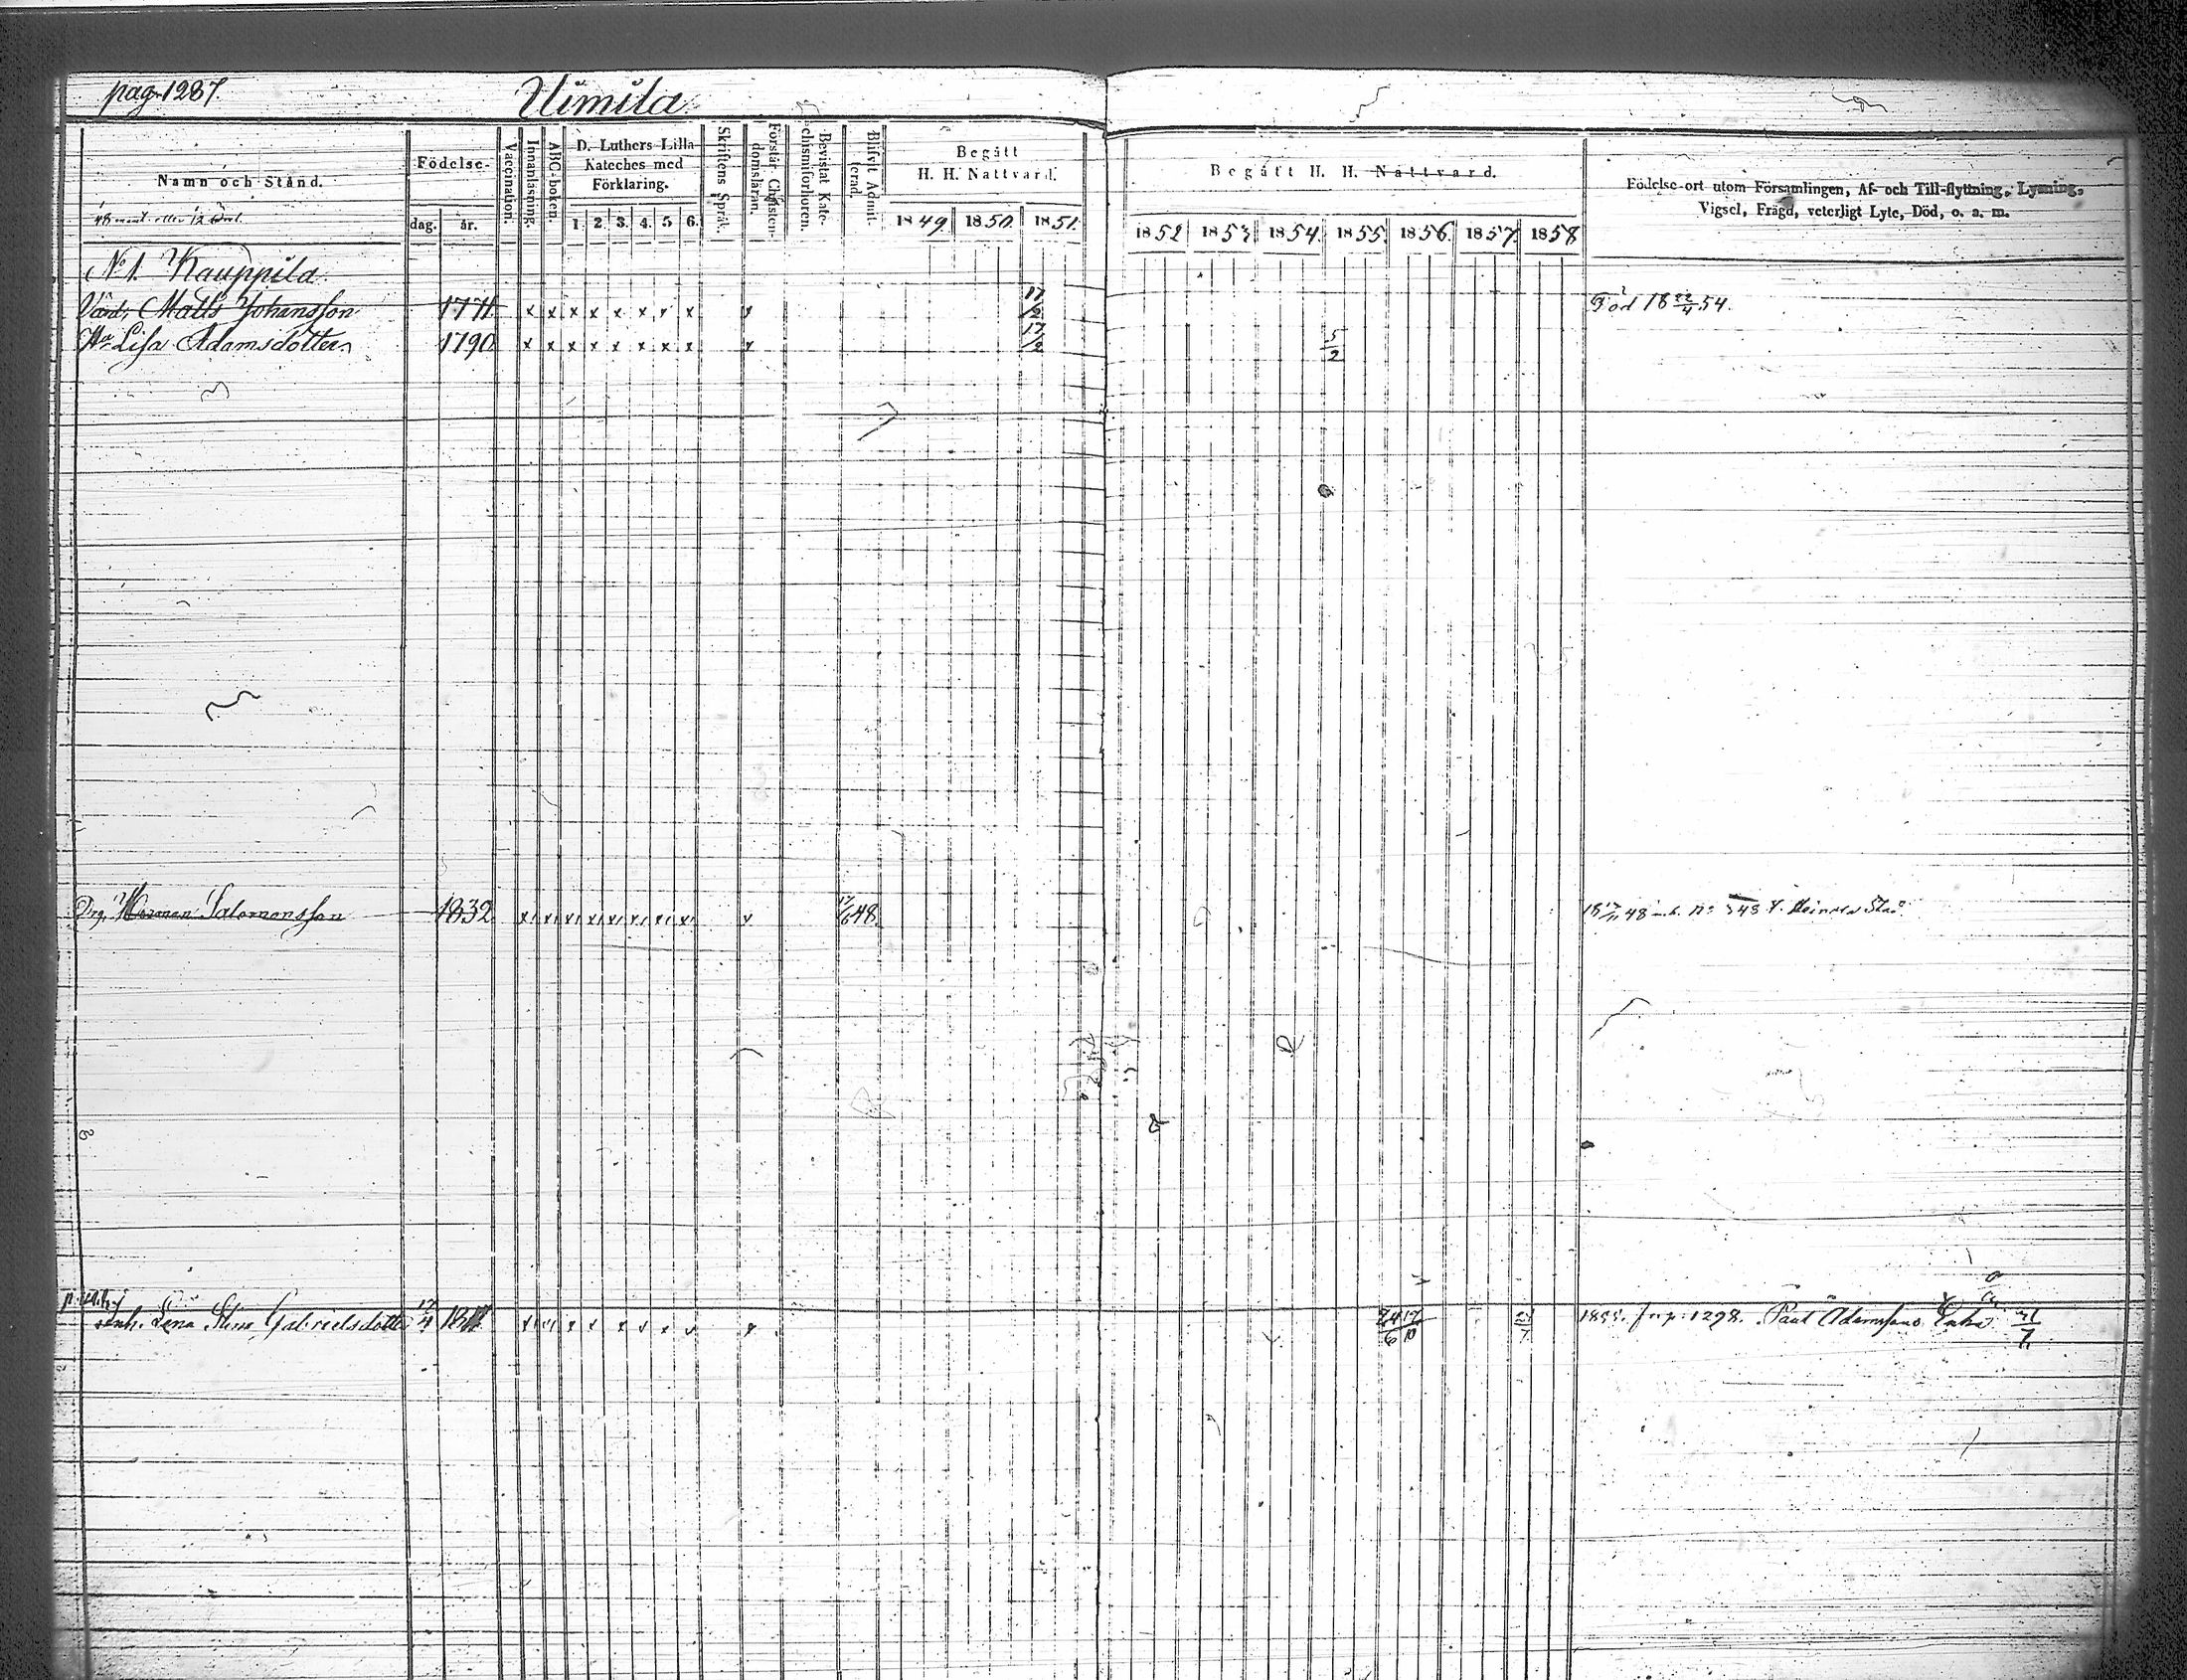 pag. 1287.
Uimila.
Namn och Stånd.
Födelse-
dag. år.
Vaccination.
Innanläsning.
ABC-boken.
D. Luthers Lilla
Kateches med
Förklaring.
1. 2. 3. 4. 5 6.
Skriftens Språk.
Förstår Christen-
domsläran.
Bevistat Kate-
chismiförhören.
Blifvit Admit-
terad.
Begått
H. H. Nattvard.
1849. 1850. 1851.
Begått H. H. Nattvard.
1852 1853 1854. 1855. 1856. 1857. 1858
Födelse-ort utom Församlingen, Af- och Till-flyttning, Lysning,
Vigsel, Frägd, veterligt Lyte, Död, o. a. m.
No 1. Kauppila.
Värd, Matts Johansson 1771. x x x x x x x x x 17/2 Död 18 22/4 54.
Lisa Adamsdotter. 1790 x x x x x x x x x 17/2 5/2
Drg. Salomonsson 1832 x x x x x x x x x 48.
Inh. Lena Stina Gabrielsdotter 12/4 x x x x x x x x x 1855. fr. p. 1298. Paul Adamssons Enka